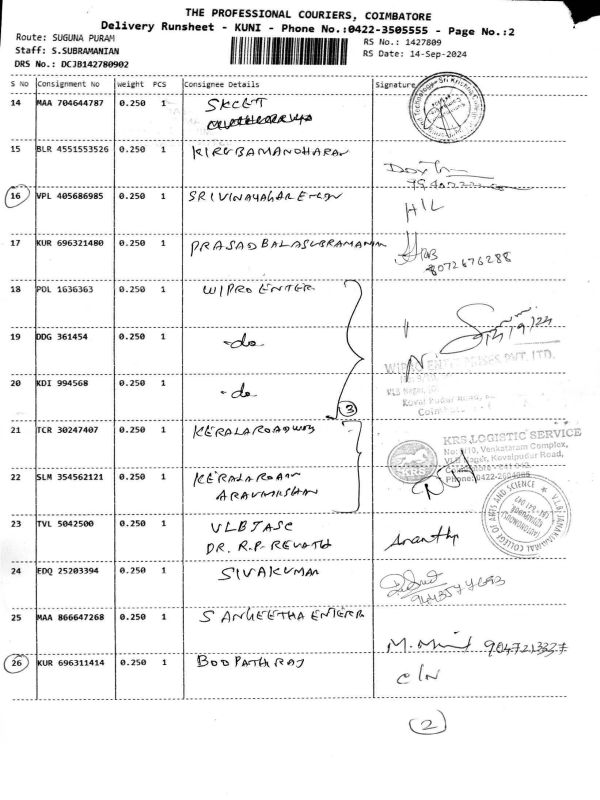 THE PROFESSIONAL COURIERS, COIMBATORE
Delivery Runsheet - KUNI - Phone No.:0422-3505555 - Page No.:2
Route: SUGUNA PURAM
RS No.: 1427809
Staff: S.SUBRAMANIAN
RS Date: 14-Sep-2024
DRS No.: DCJB142780902
S No Consignment No Weight PCS Consignee Details Signature
14 MAA 704644787 0.250 1 SKCET
15 BLR 4551553526 0.250 1 KIRUBAMANOHARAN
16 VPL 405686985 0.250 1 SRIVINAYAGAR
H/L
17 KUR 696321480 0.250 1 PRASAD BALASUBRAMANIAN
8072676288
18 POL 1636363 0.250 1 WIPRO ENTER
14/9/24
19 DDG 361454 0.250 1 -do
WIPRO ENTERPRISES PVT. LTD.
20 KDI 994568 0.250 1 -do
Kovai Pudur Road,
3
21 TCR 30247407 0.250 1 KERALAROADWAY
KRS LOGISTIC SERVICE
Venkataram Complex,
VLB Nagar, Kovaipudur Road,
KRS
22 SLM 354562121 0.250 1 KERALAROAD
23 TVL 5042500 0.250 1 VLBJASC
DR. R.P. REVATHI
V.L.B. JANAKIAMMAL COLLEGE OF ARTS AND SCIENCE
(AUTONOMOUS)
Ananthi
24 EDQ 25203394 0.250 1 SIVAKUMAR
25 MAA 866647268 0.250 1 SANGEETHA ENTERR
9047213327
26 KUR 696311414 0.250 1 BOOPATHRAJ
C/N
2